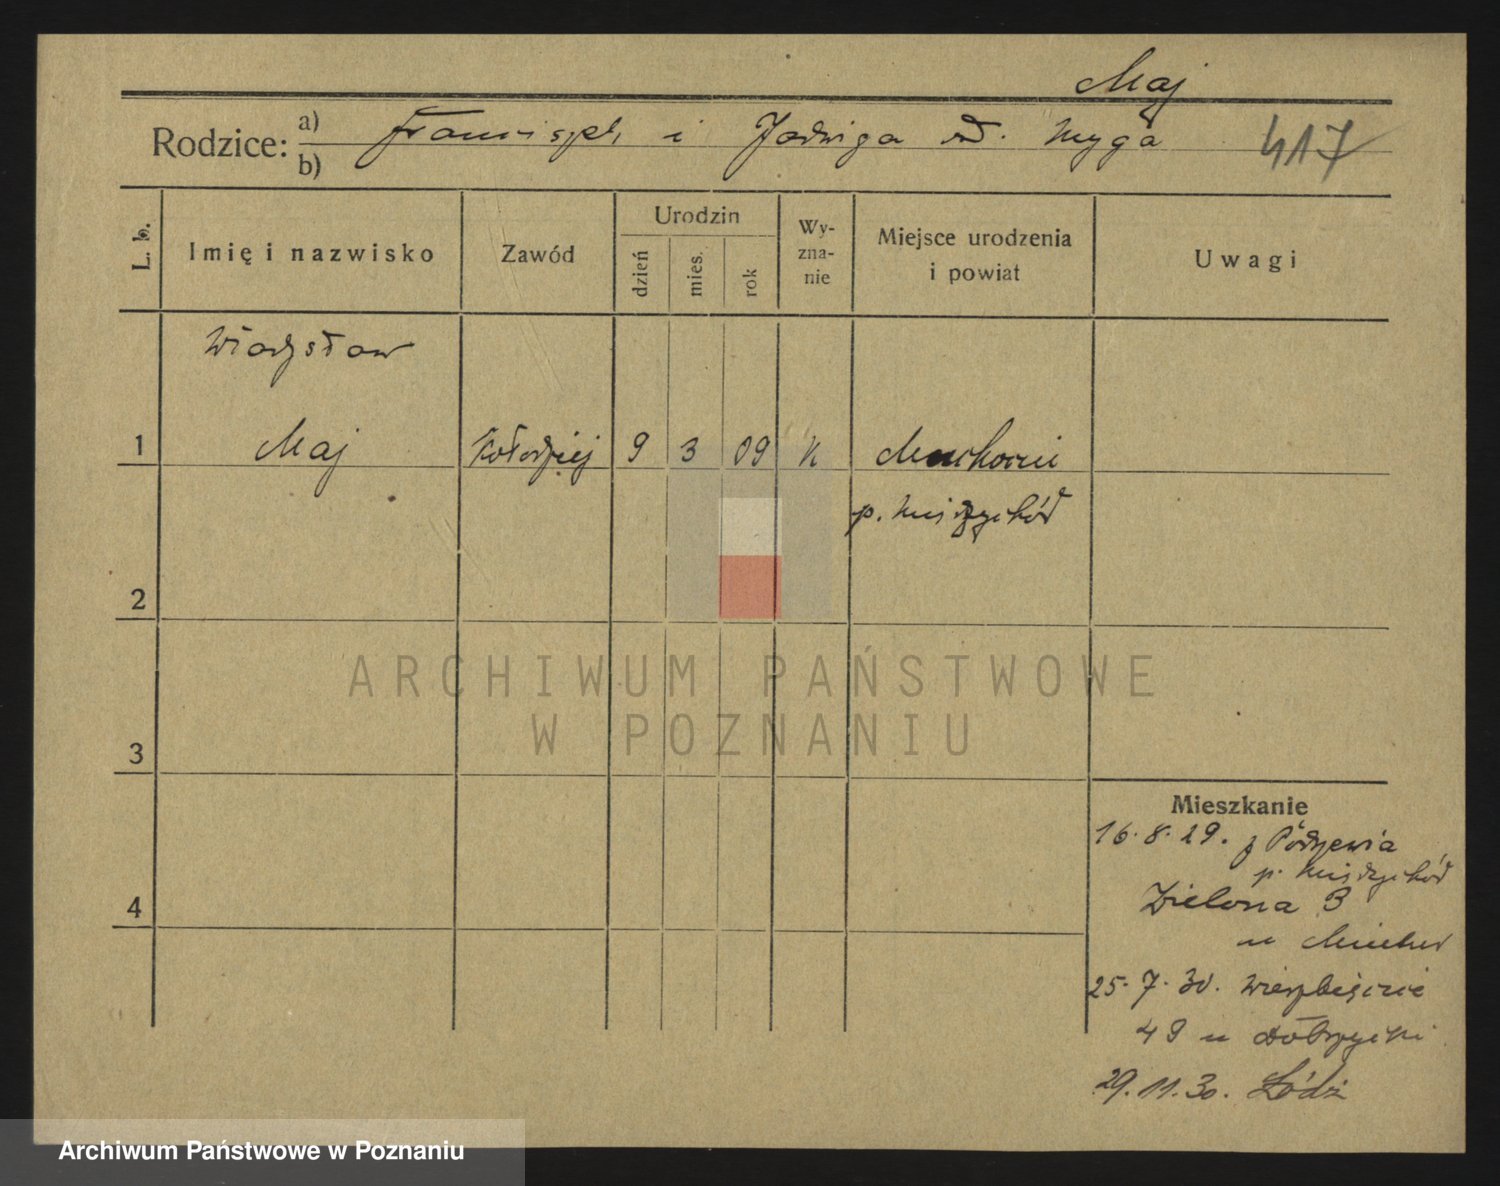 Maj
Rodzice: a) Franciszek i Jadwiga z d. Myga 417
b)
L. b.
Imię i nazwisko
Zawód
Urodzin
dzień
mies.
rok
Wy-
zna-
nie
Miejsce urodzenia
i powiat
Uwagi
Władysław
1 Maj Kołodziej 9 3 09 K Muchocin
p. Międzychód
2
3
4
ARCHIWUM PAŃSTWOWE
W POZNANIU
Mieszkanie
16. 8. 29. z
p. Międzychód
Zielona 3
u
25. 7. 30. Wierzbięcice
49 u
29. 11. 30. Łódź
Archiwum Państwowe w Poznaniu